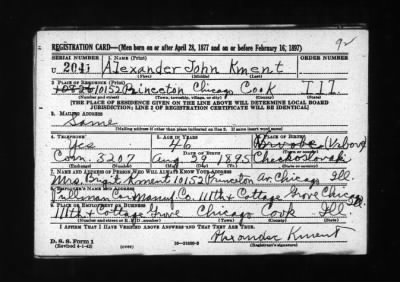 92
REGISTRATION CARD—(Men born on or after April 28, 1877 and on or before February 16, 1897)
SERIAL NUMBER 1. NAME (Print) ORDER NUMBER
U 2041 Alexander John Kment
(First) (Middle) (Last)
2. PLACE OF RESIDENCE (Print)
10152 Princeton Chicago Cook Ill.
(Number and street) (Town, township, village, or city) (County) (State)
[THE PLACE OF RESIDENCE GIVEN ON THE LINE ABOVE WILL DETERMINE LOCAL BOARD
JURISDICTION; LINE 2 OF REGISTRATION CERTIFICATE WILL BE IDENTICAL]
3. MAILING ADDRESS
Same
[Mailing address if other than place indicated on line 2. If same insert word same]
4. TELEPHONE 5. AGE IN YEARS 6. PLACE OF BIRTH
Yes 46
DATE OF BIRTH
3207 Aug 29 1895
7. NAME AND ADDRESS OF PERSON WHO WILL ALWAYS KNOW YOUR ADDRESS
Mrs. Kment 10152 Princeton Av. Chicago Ill.
8. EMPLOYER'S NAME AND ADDRESS
Pullman Car Co. 111th & Cottage Grove Chic Ill.
9. PLACE OF EMPLOYMENT OR BUSINESS
111th & Cottage Grove Chicago Cook Ill.
(Number and street or R. F. D. number) (Town) (County) (State)
I AFFIRM THAT I HAVE VERIFIED ABOVE ANSWERS AND THAT THEY ARE TRUE.
D. S. S. Form 1
(Revised 4-1-42) (over) Alexander Kment
(Registrant's signature)